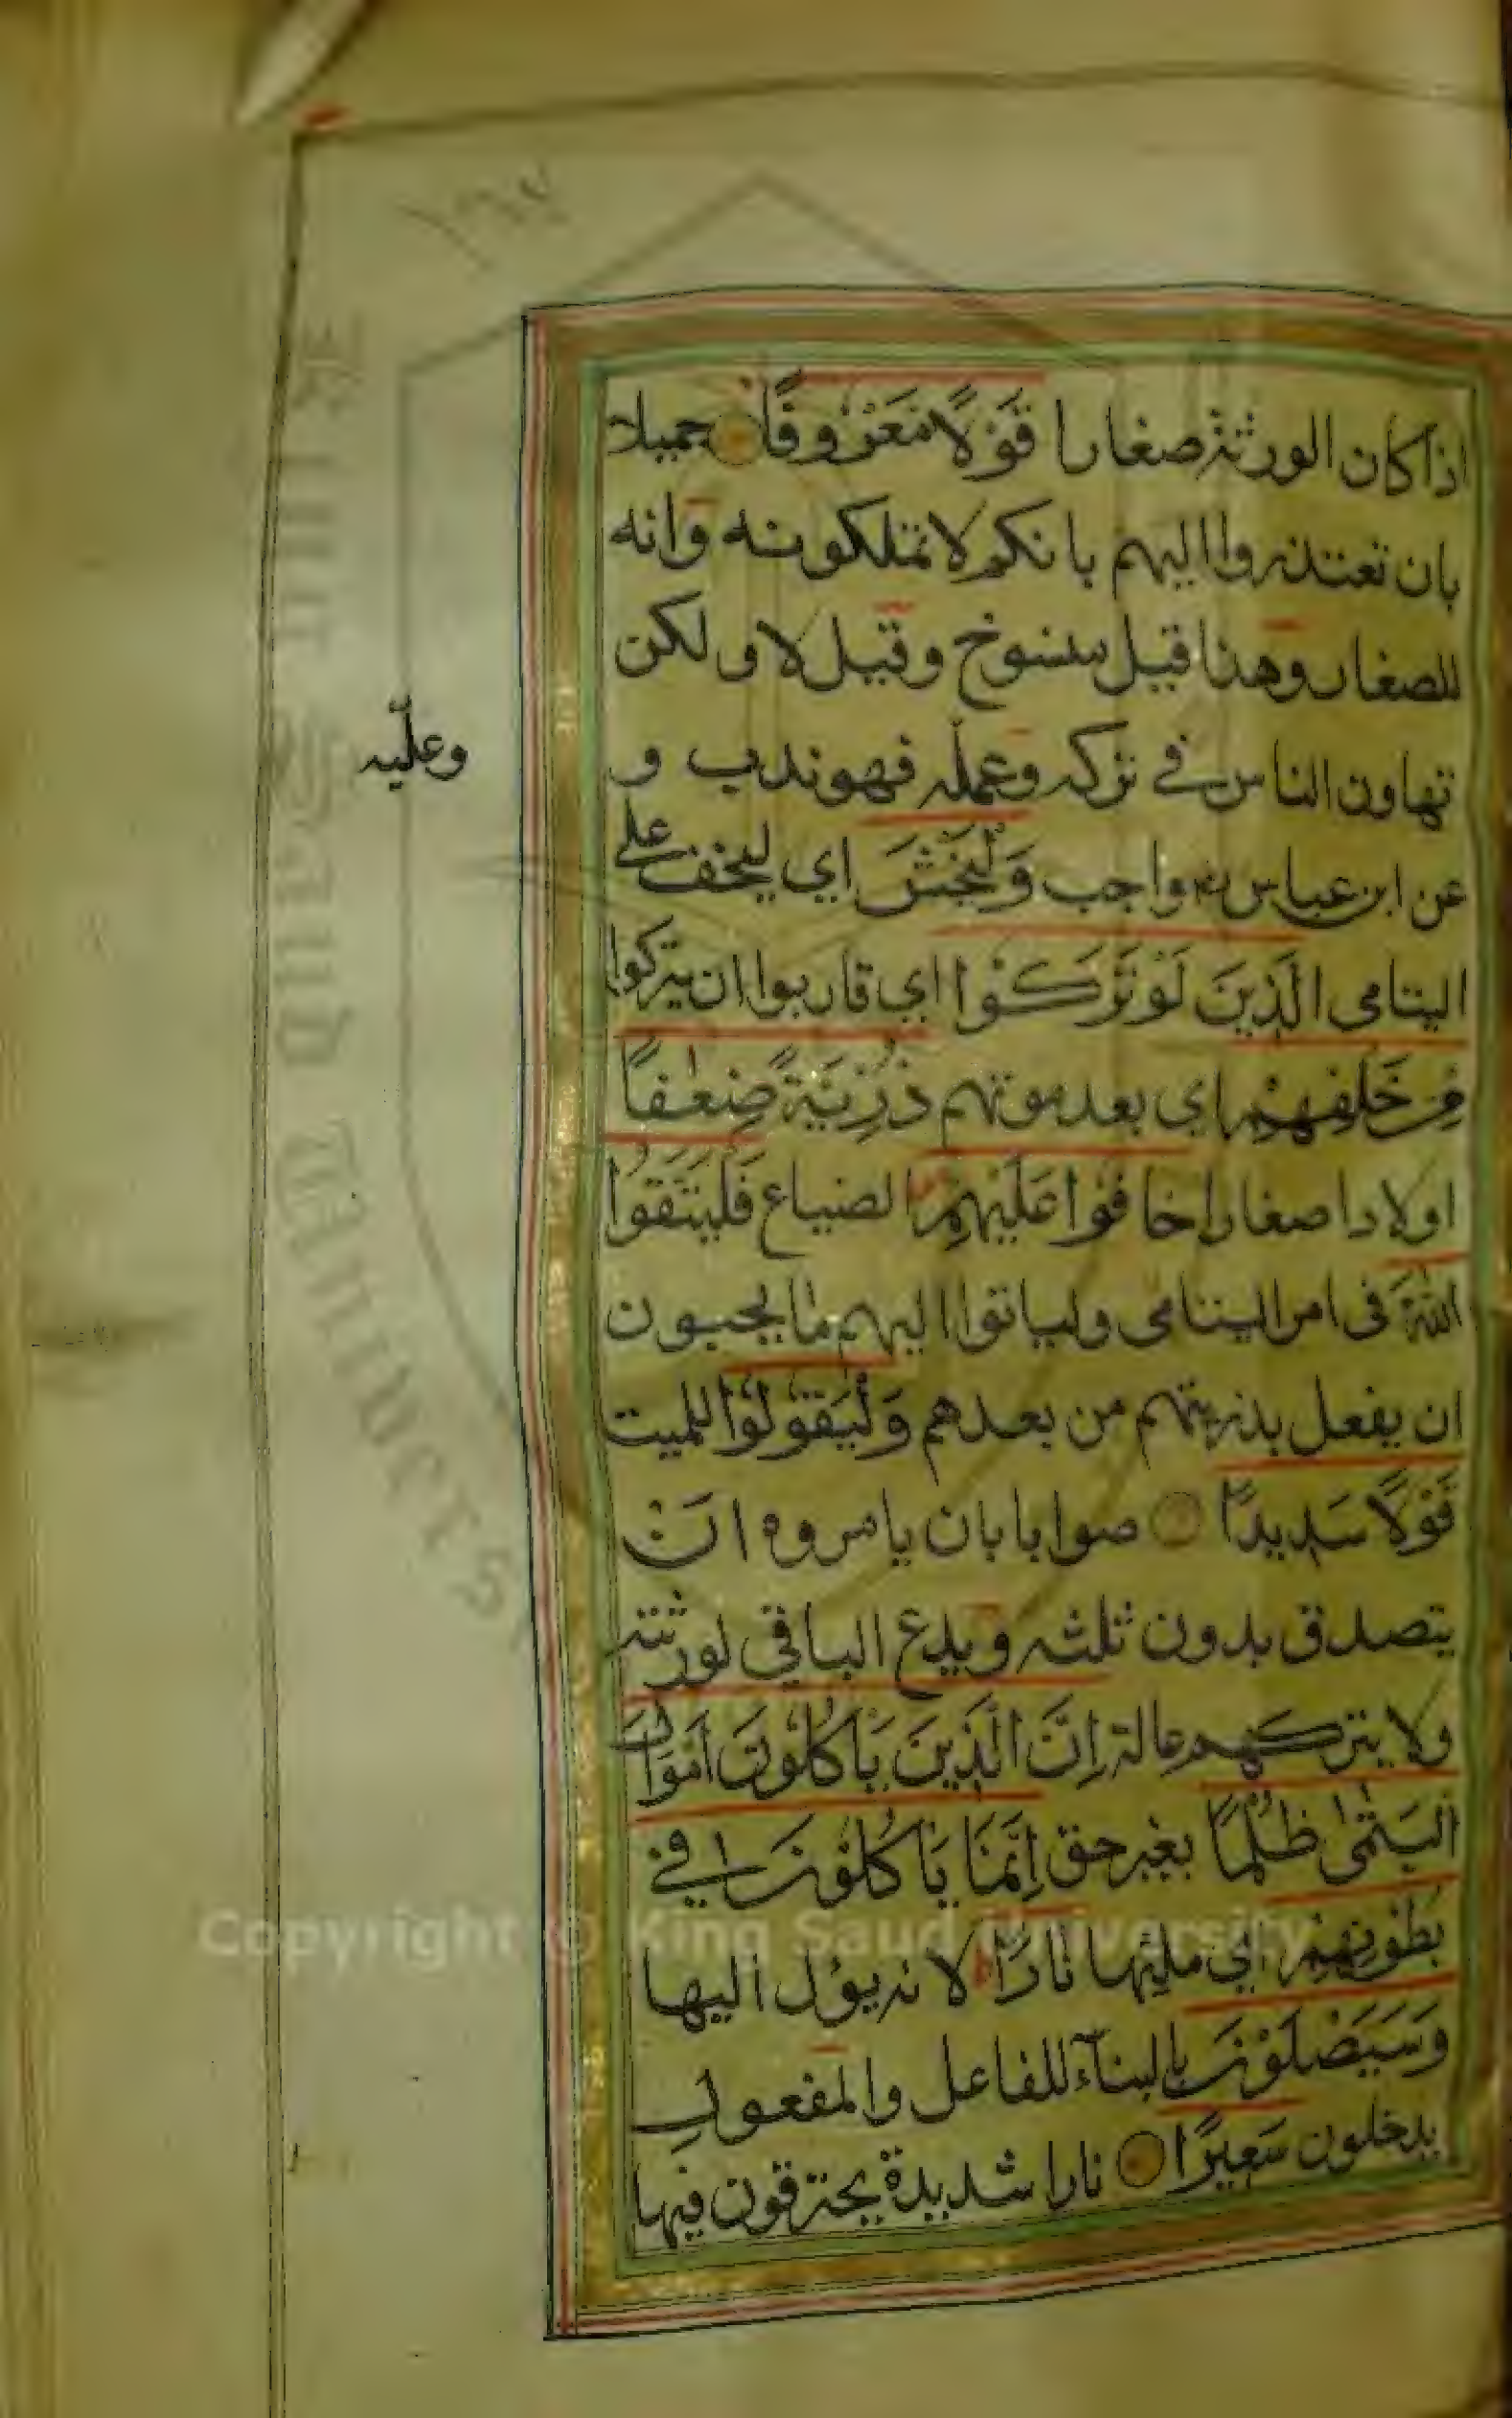 ١٦٧
اذا كان الورثة صغارا قَوْلًا مَعْرُوفًا جميلا
بان تعتذروا اليهم بانكم لا تملكونه وانه
للصغار وهذا قيل منسوخ وقيل لا ولكن
تهاون الناس في تركه وعمله فهو ندب و
وعليه
عن ابن عباس واجب وَلْيَخْشَ اي ليخف على
اليتامى الَّذِينَ لَوْ تَرَكُوْا اي قاربوا ان يتركوا
مِنْ خَلْفِهِمْ اي بعد موتهم ذُرِّيَّةً ضِعٰفًا
اولادا صغارا خَافُوْا عَلَيْهِمْ الضياع فَلْيَتَّقُوا
اللّٰهَ فى امر اليتامى ولياتوا اليهم ما يحبون
ان يفعل بذريتهم من بعدهم وَلْيَقُولُوْا للميت
قَوْلًا سَدِيدًا صوابا بان يامروه ان
يتصدق بدون ثلثه ويدع الباقي لورثته
ولا يتركهم عالة اِنَّ الَّذِينَ يَأكُلُوْنَ اَمْوَالَ
الْيَتٰمٰى ظُلْمًا بغير حق اِنَّمَا يَأكُلُوْنَ فِي
بُطُوْنِهِمْ اي ملئها نَارًا لانه يؤل اليها
وَسَيَصْلَوْنَ بالبناء للفاعل والمفعول
يدخلون سَعِيْرًا نارا شديدة يحترقون فيها
Copyright © King Saud University
King Saud University